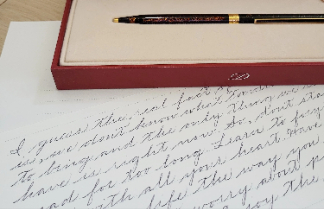 I guess the real fact
is, we don't know what
to bring and the only thing we
have is right now. So, don't sta
ad for too long. Learn to for
ith all your heart.
life the way you
worry about p
oy the